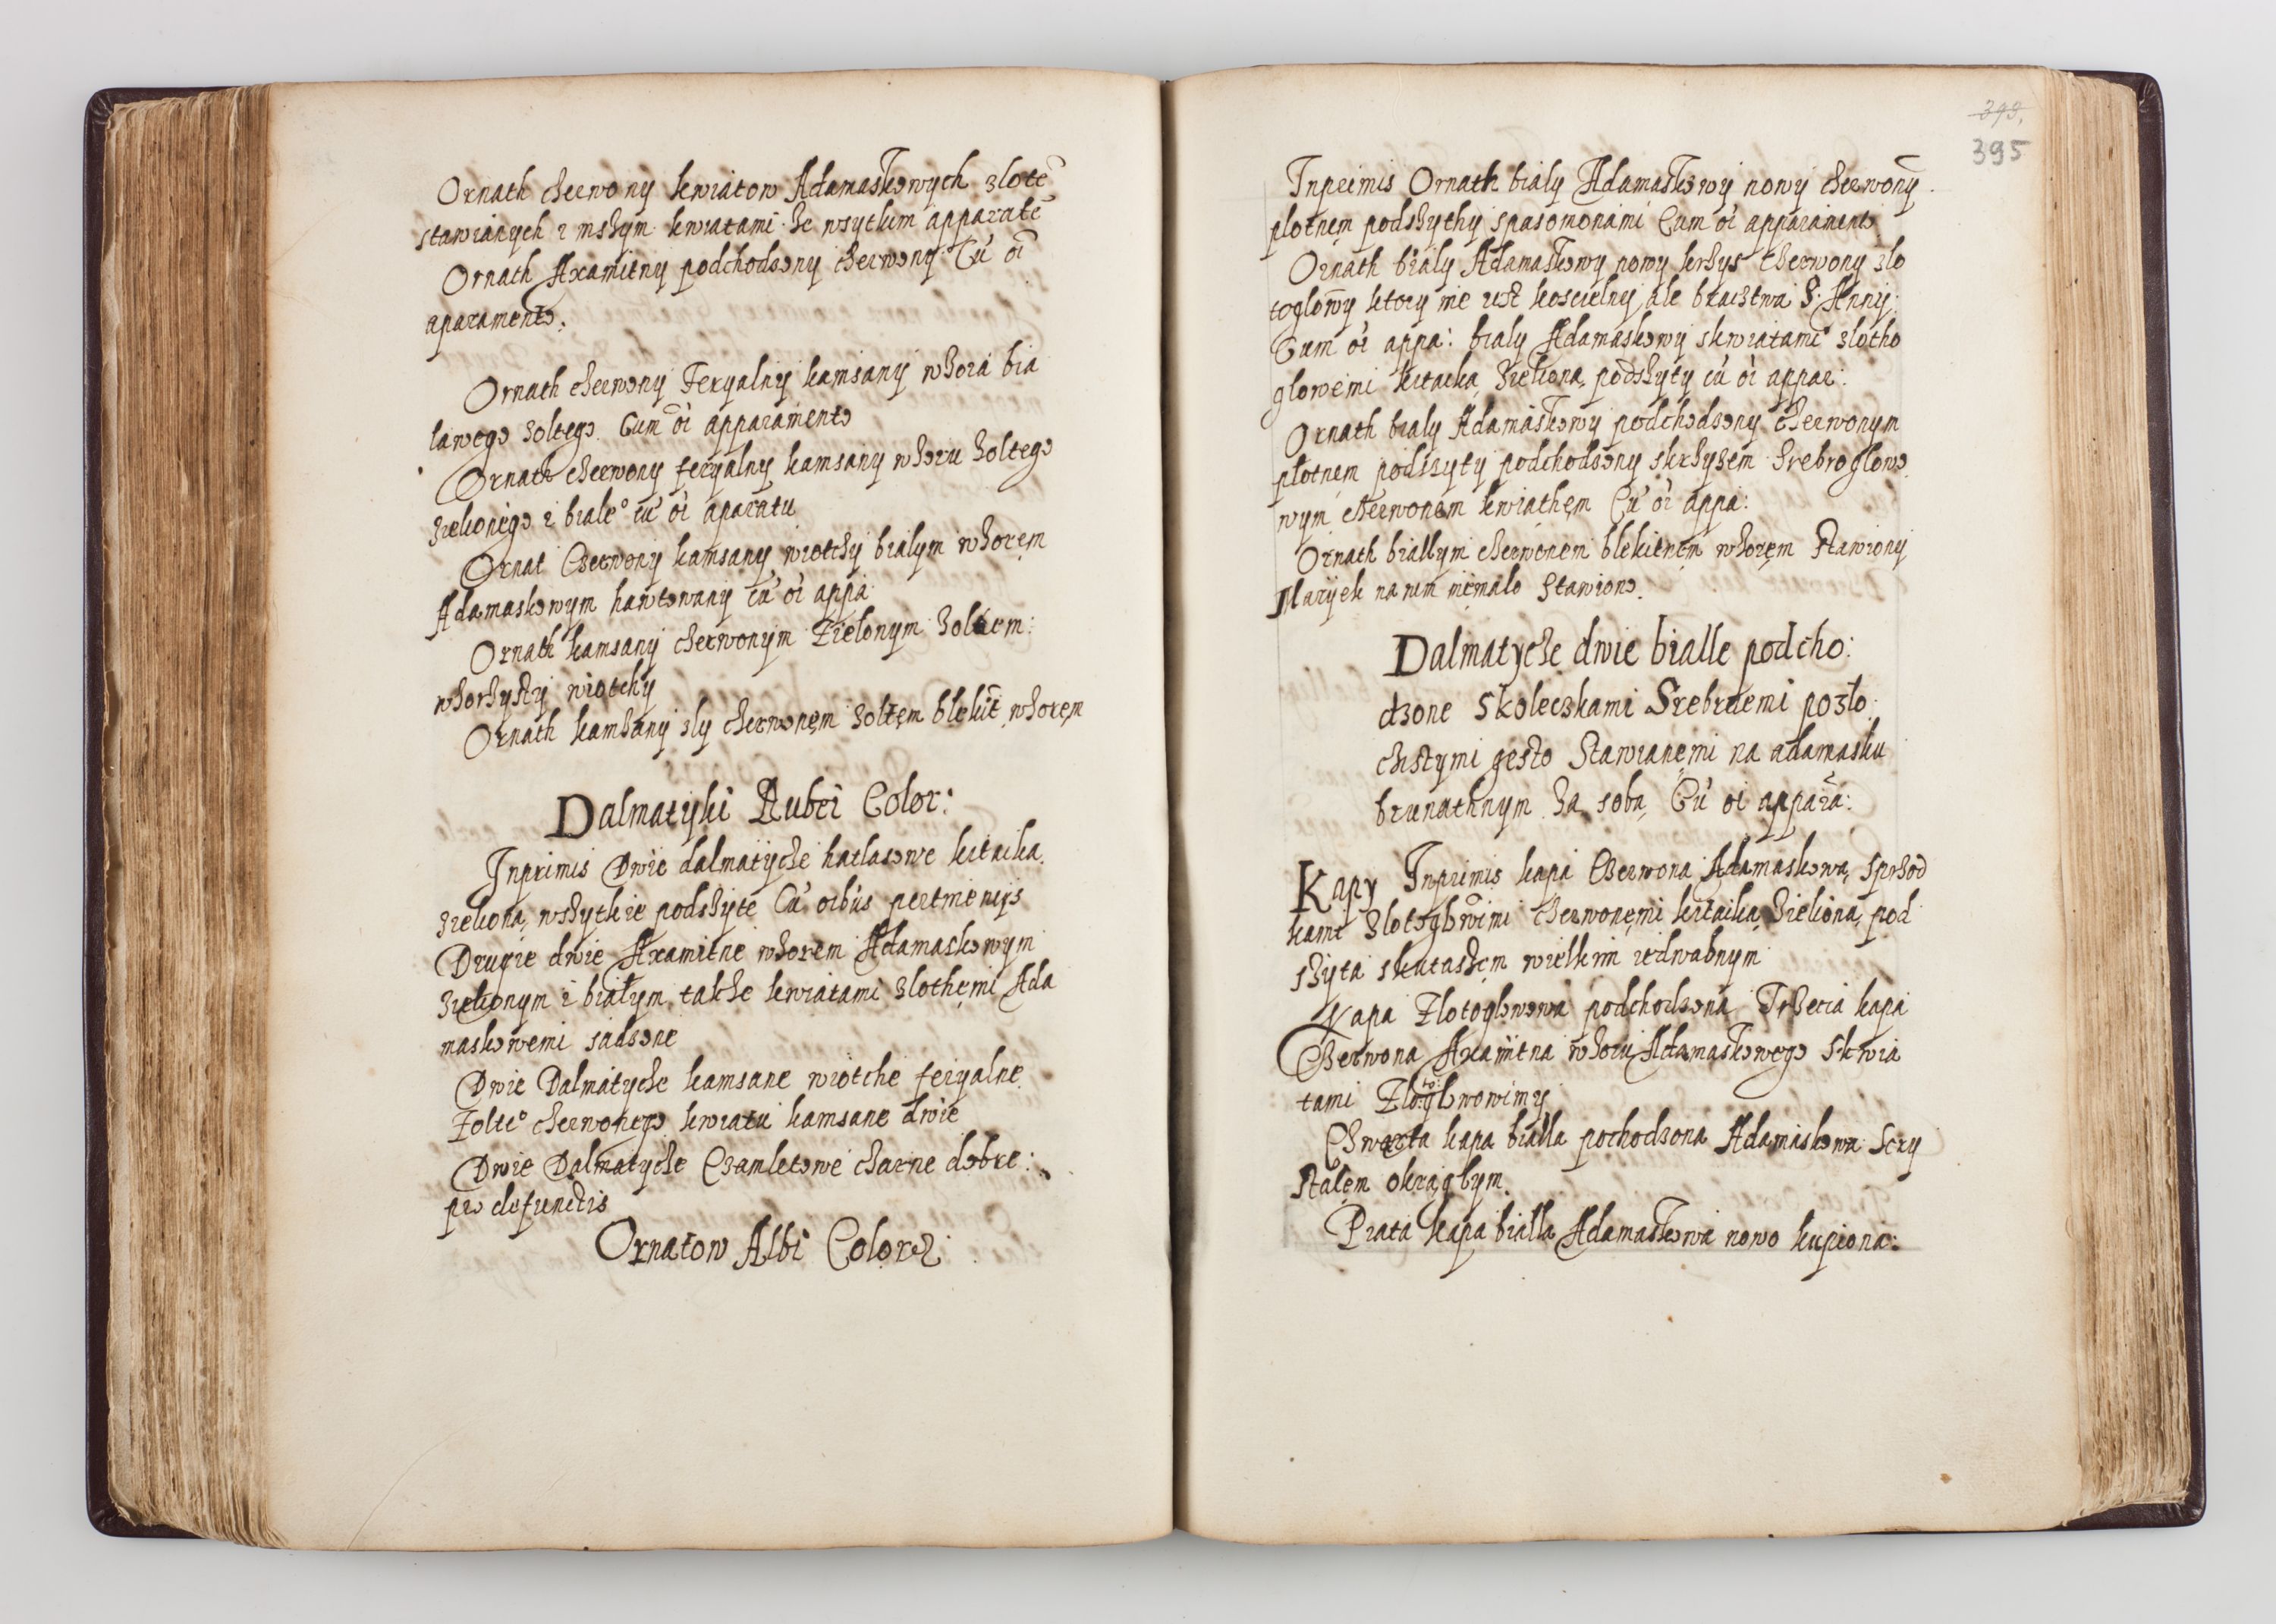 Ornath cherwony kwiatow Adamaskowych zlote
stawianych i mshym kwiatami ze wsytkim apparate
Ornath Axamitny podchodsony cherwony Cu oi
aparamento.
Ornath cherwony Feryalny kamsany whora bia
lawego zoltego Cum oi apparamento
Ornath cherwony feryalny kamsany whoru zoltego
zielionego i biale° cu oi aparatu
Ornat Czerwony kamsany wiotchy bialym whorem
Adamaskowym hawtowany cu oi appa
Ornath kamsany cherwonym Zielonym zoltem:
whorhysty wiotchy
Ornath kamsany zly cherwonem zoltem blekit whorem
Dalmatyki Rubei Color:
Inprimis Dwie dalmatyche hatlasowe kitaika
zieliona wshytkie podshyte Cu oibus pertinencijs
Drugie dwie Axamitne whorem Adamaskowym
zielionym i bialym takze kwiatami zlothemi Ada
maskowemi sadsone
Dwie Dalmatyche kamsane wiotche feryalne
Zolte° cherwonego kwiatu kamsane dwie
Dwie Dalmatyche Czamletowe charne dobre:
pro defunctis
Ornatow Albi Coloris
393.
395
Inprimis Ornath bialy Adamaskowy nowy cherwony
plotnem podshythy spasomonami Cum oi apparamento
Ornath bialy Adamaskowy nowy krhys cherwony zlo
toglowy ktory nie iest koscielny ale bractwa S. Anny.
Cum oi appa: bialy Adamaskowy skwiatami zlotho
glowemi kitaika zieliona podshyty cu oi appar:
Ornath bialy Adamaskowy podchodsony cherwonym
plotnem podszyty podchodsony skrhyzem Srebroglowo
wym cherwonem kwiathem Cu oi appa:
Ornath biallym cherwonem blekitnem whorem stawiony
Maryek na nim niemalo stawiono.
Dalmatyche dwie bialle podcho:
dzone skoleczkami Srebrnemi pozlo
chistymi gesto stawianemi na adamasku
brunathnym za soba Cu oi appara:
Kapy Inprimis kapa Czerwona Adamaskowa sprhod
kami zlotoglowimi cherwonemi kitaika zieliona pod
shyta skutashem wielkim iedwabnym
Kapa Zlotoglowowa podchodsona Trzecia kapa
Czerwona Axamitna whoru Adamaskowego skwia
tami Zlotoglowowimy
Czwarta kapa bialla pochodzona Adamaskowa skry
stalem okraglym.
Piata kapa bialla Adamaskowa nowo kupiona: